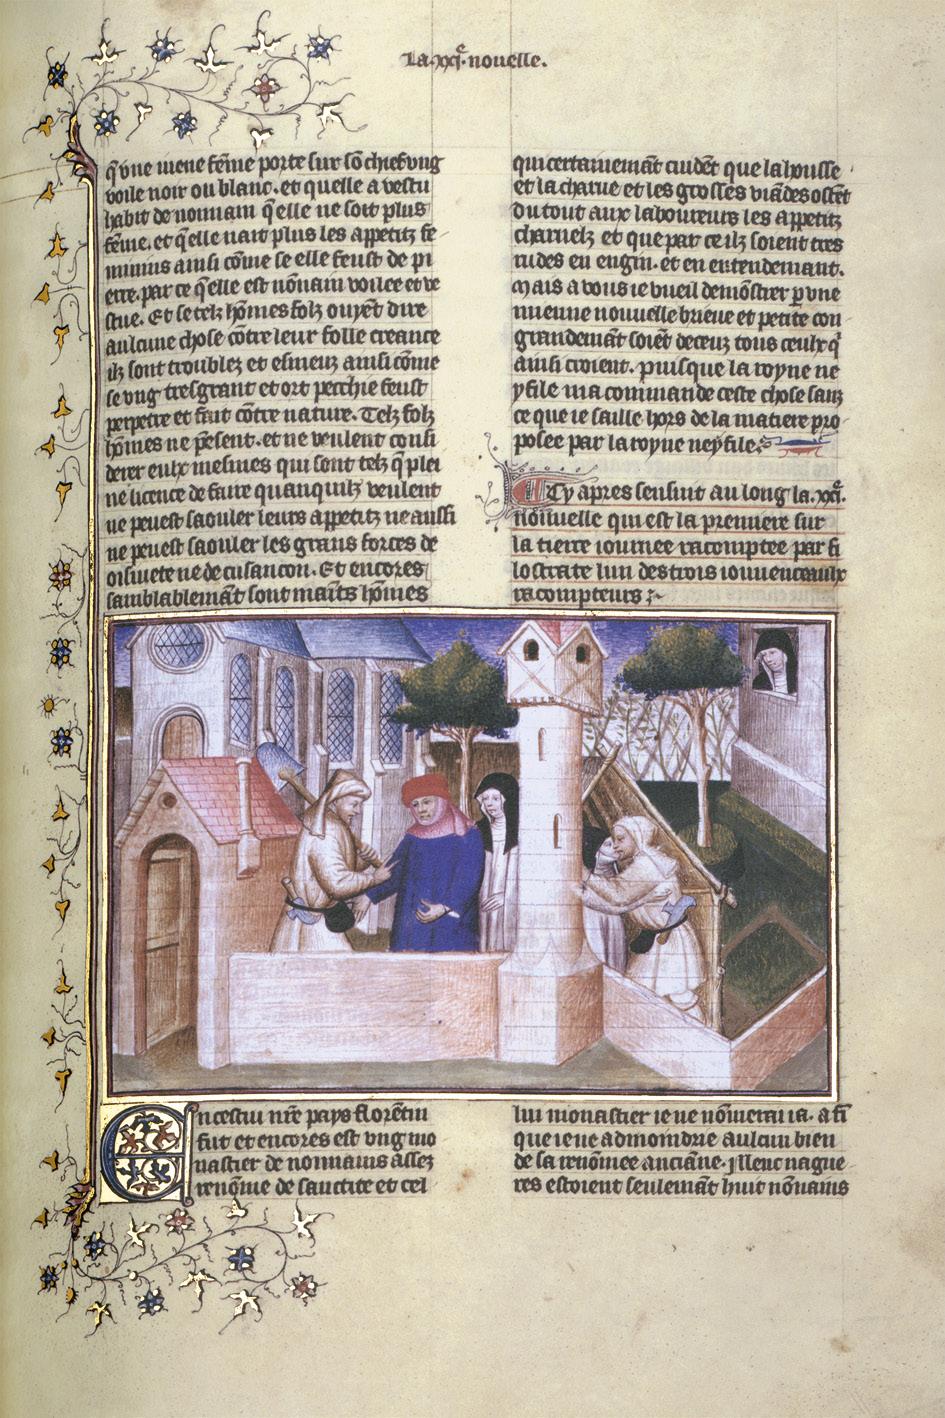 La .xxj.e nouelle.
q̄ vne mene fēme porte sur sō chief vng
voile noir ou blanc. et quelle a vestu
habit de nonnain q̄ elle ne soit plus
fēme. et q̄ elle nait plus les appetitz fe
minins ainsi cōme se elle feust de pi
erre. par ce q̄ elle est nōnain voilee et ve
stue. Et se telz hōmes folz ouyēt dire
aulcune chose cōtre leur folle creance
ilz sont troublez et esmeuz ainsi cōme
se vng tresgrant et ort pechie feust
perpetre et fait cōtre nature. Telz folz
hōmes ne p̄sent. et ne veulent consi
derer eulx mesmes qui sont telz q̄ plei
ne licence de faire quanquilz veulent
ne peuest saouler leurs appetitz ne aussi
ne peuest saouler les grans forces de
oisiuete ne de cusancon. Et encores
samblablemāt sont maīts hōmes
qui certainemāt cuidēt que la housse
et la charue et les grosses viādes ostēt
du tout aux laboureurs les appetitz
charnelz et que par ce ilz soient tres
rudes en engin. et en entendemant.
Mais a vous ie vueil demōstrer p vne
mienne nouuelle brieue et petite con
grandemāt soiēt deceuz tous ceulx q̄
ainsi croient. puisque la royne ne
yfile ma commande ceste chose sanz
ce que ie saille hors de la matiere pro
posee par la royne neyfile.
Cy apres sensuit au long la .xxj.e
nouuelle qui est la premiere sur
la tierce iournee racomptee par fi
lostrate lun des trois iouuenceaulx
racompteurs
En cestui nr̄e pays florētin
fut et encores est vng mo
nastier de nonnains assez
renōme de sainctite et cel
lui monastier ie ne nōmerai ia. a fī
que ie ne admondrie aulcun bien
de sa renōmee anciāne. Illeuc nague
res estoient seulemāt huit nōnains